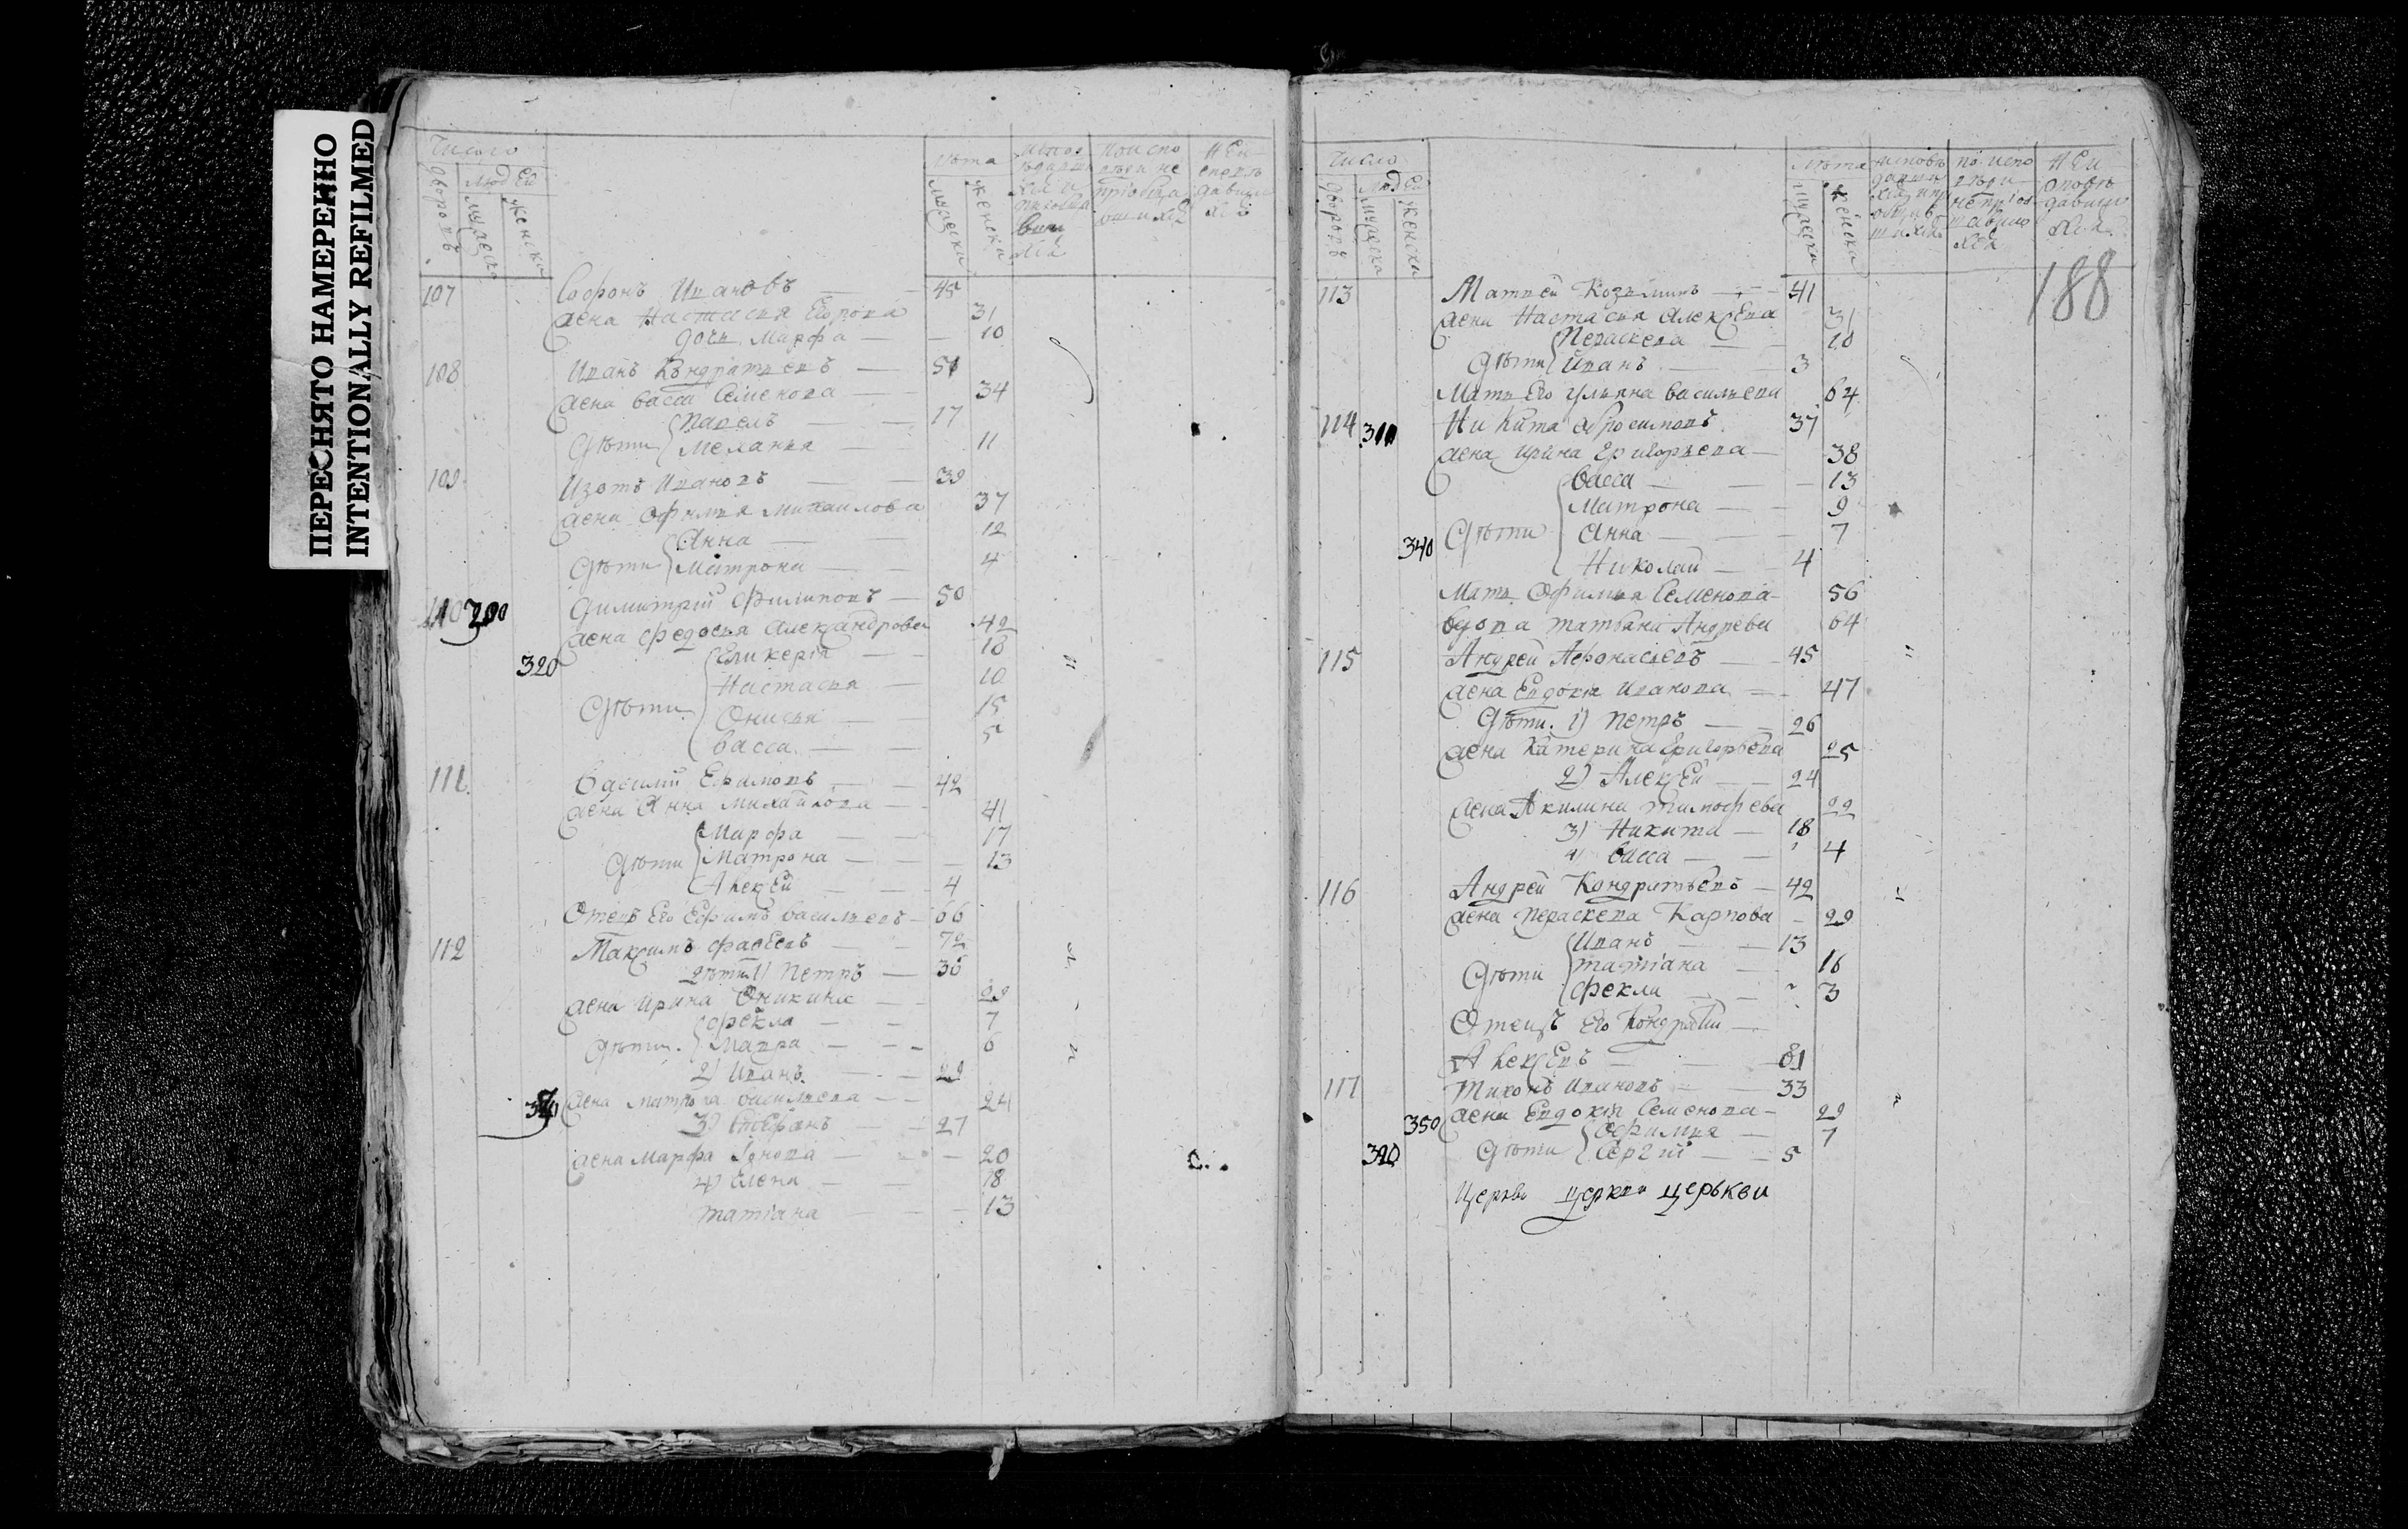 ПЕРЕСНЯТО НАМЕРЕННО
INTENTIONALLY REFILMED
Число
дворовъ
людей
мужеска
женска
лѣта
мужеска
женска
107 Софонъ Ивановъ — 45
жена Настасья Егорова 31
дочь Марфа — 10
108 Иванъ Кондратьевъ — 51
жена васса Семенова — 34
Павелъ — 17
дѣти Меланья — 11
109 Изотъ Ивановъ — 39
жена Офимья михаилова 37
Анна — 12
дѣти Матрона — 4
110 Димитрій Филиповъ — 50
жена федосья александрова 42
320 Гликерія — 18
Настасья — 10
дѣти Онисья — 15
васса — 5
111 Василий Ефимовъ — 42
жена Анна михайлова — 41
Марфа — 17
дѣти Матрона — 13
Алексѣй — 4
Отецъ Его Ефимъ васильевъ — 66
112 Максимъ фадеевъ — 72
дѣти 1) Петръ — 36
жена ирина Оникина — 29
фекла — 7
дѣти Мавра — 6
2) Иванъ — 29
жена матрона васильева — 24
3) Стефанъ — 27
жена марфа — 20
4) Елена — 18
татіана — 13
Число
дворовъ
людей
мужеска
женска
лѣта
мужеска
женска
188
113 Матвей Козьминъ — 41
жена Настасья алексѣева 31
Пераскева — 10
дѣти Иванъ — 3
Мать Его ульяна васильева 64
114 Никита Абросимовъ 37
жена ирина григорьева — 38
васса — 13
Матрона — 9
340 дѣти Анна — 7
Николай — 4
Мать Офимья Семенова — 56
вдова татьяна Андреева 64
115 Андрей Афонасьевъ — 45
жена Евдокия Иванова — 47
дѣти. 1) Петръ — 26
жена Катерина григорьева 25
2) Алексѣй — 24
жена Акилина тимофеева 22
3) Никита — 18
4) васса — 4
116 Андрей Кондратьевъ — 42
жена Пераскева Карпова — 29
Иванъ — 13
дѣти татіана — 16
фекла — 3
Отецъ его Кондратий —
Алексѣевъ — 81
117 Тихонъ Ивановъ — 33
350 жена Евдокія Семенова — 29
Офимья — 7
дѣти Сергій — 5
церковь церкви церькви